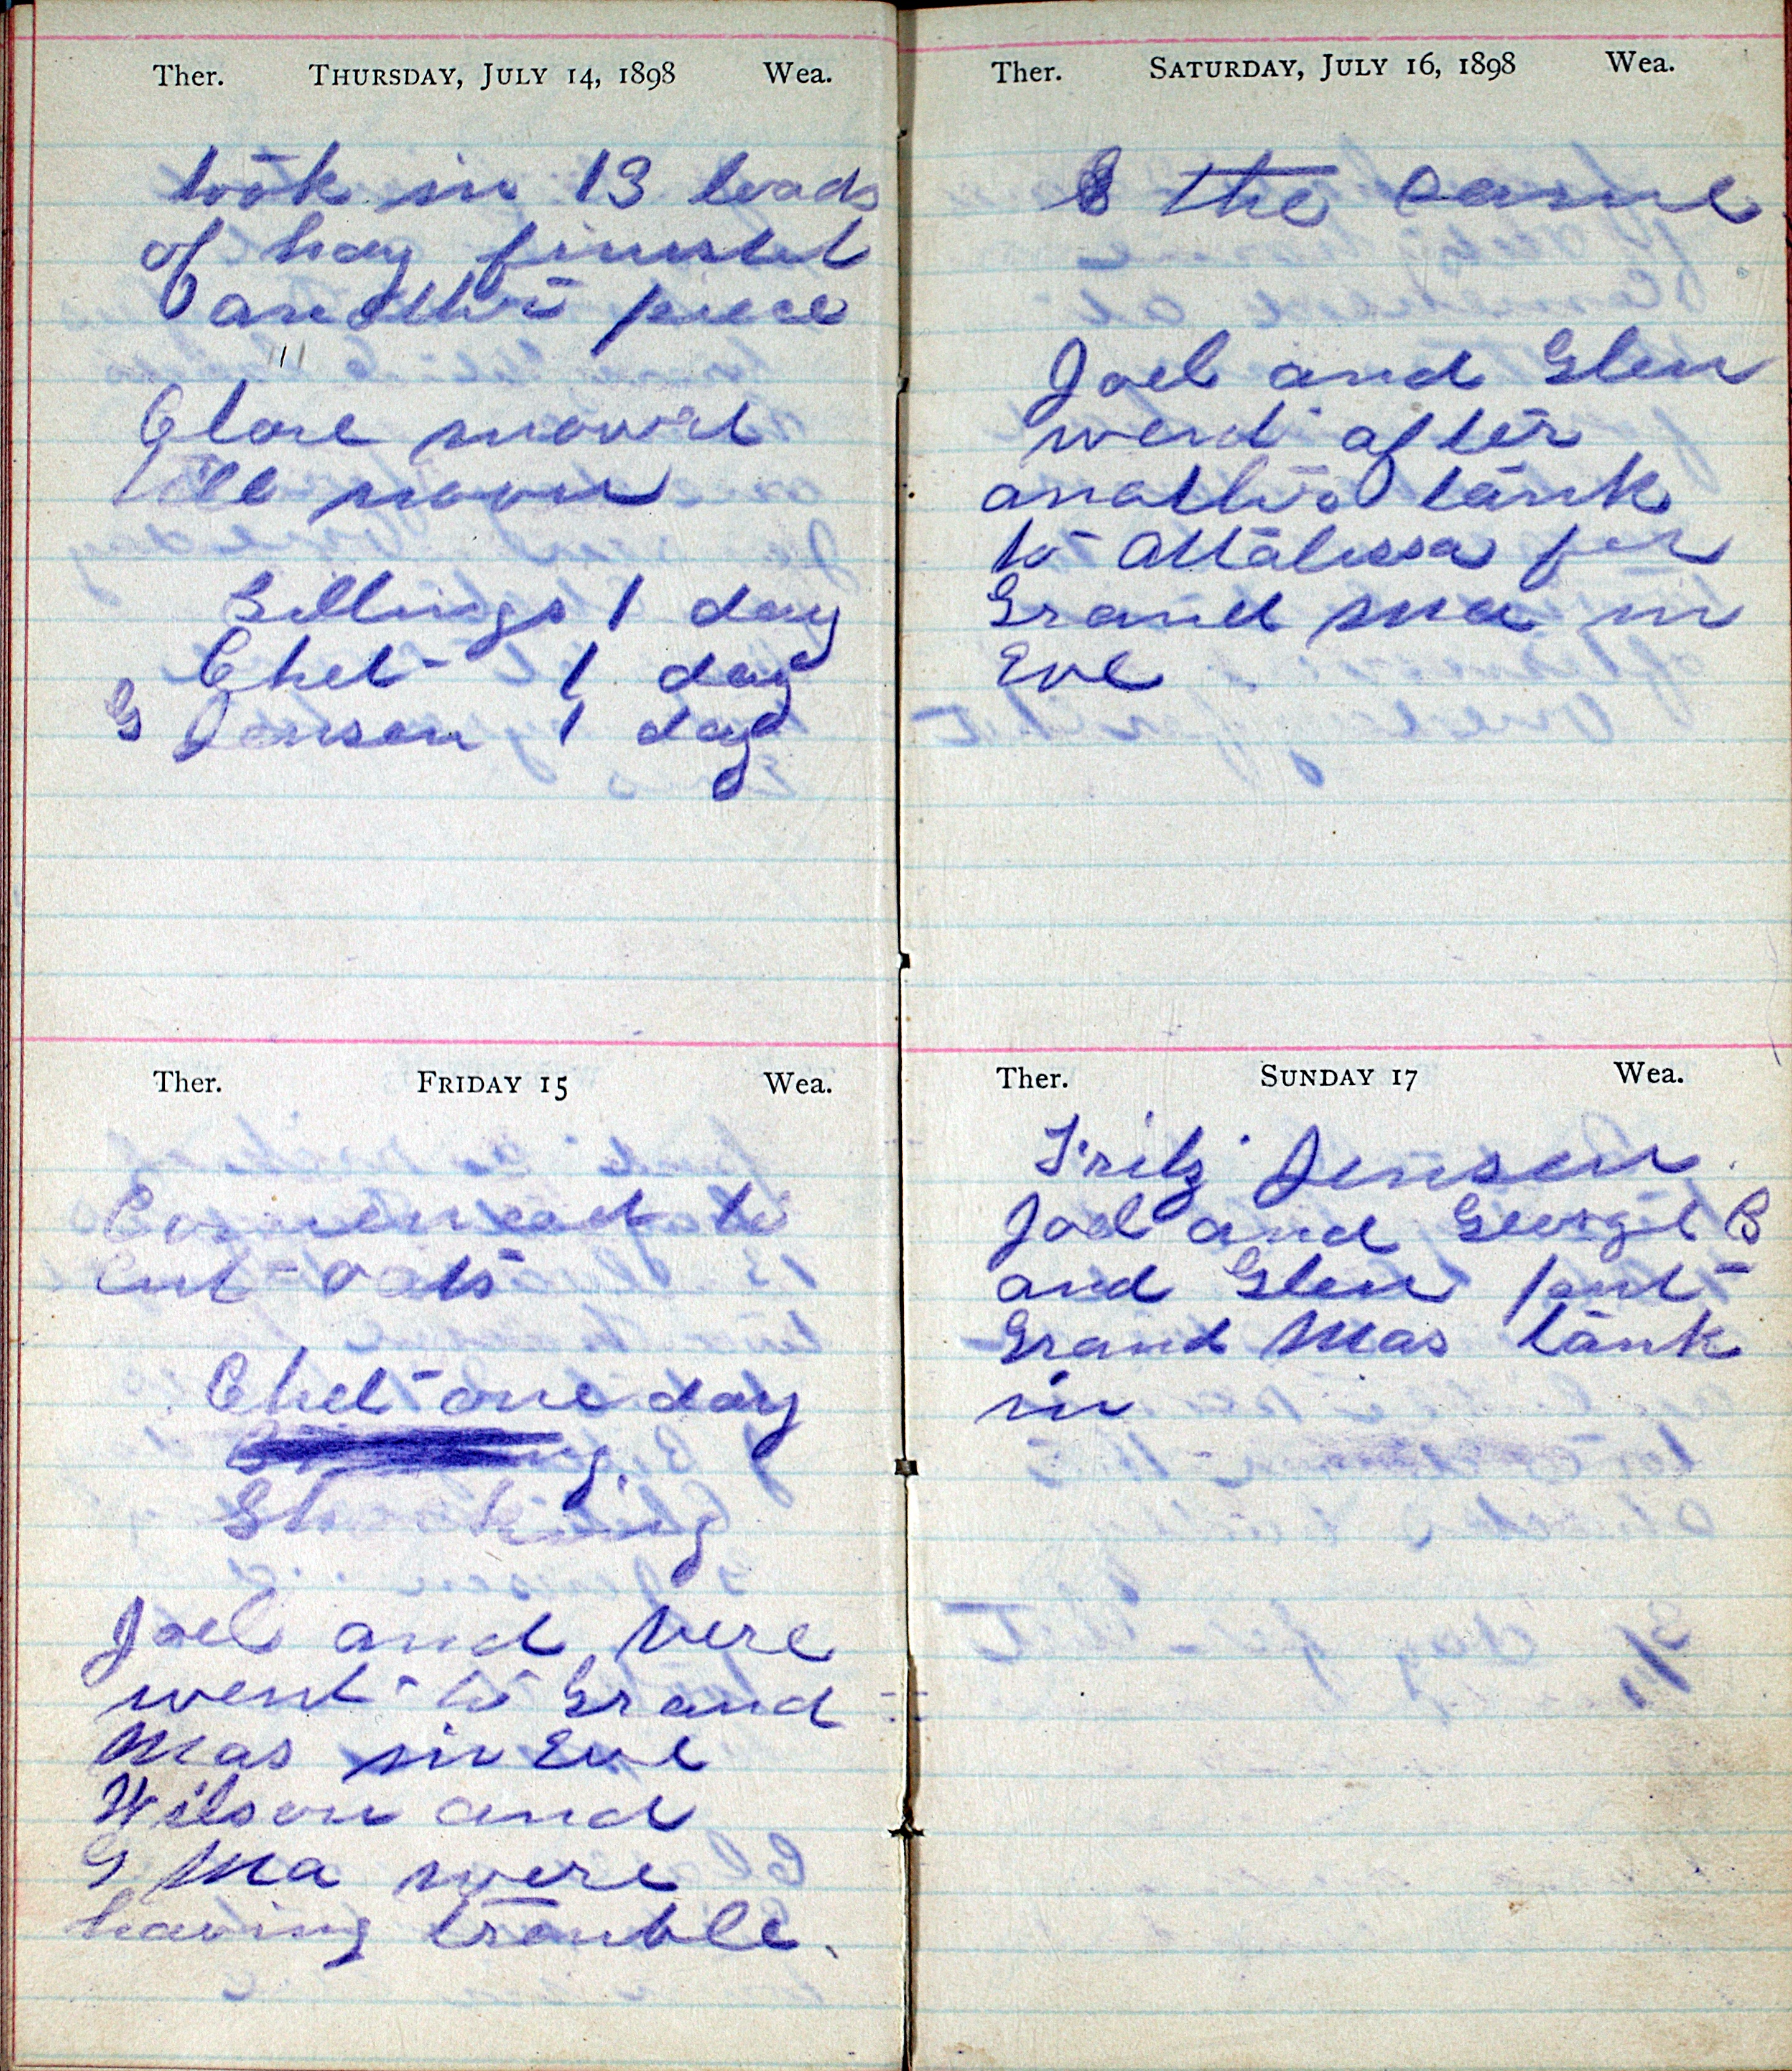 Ther. THURSDAY, JULY 14, 1898 Wea.
took in 13 loads
of hay finishd
another piece
Clare mowed
till noon
Billings 1 day
Chet 1 day
G Jensen 1 day
Ther. FRIDAY 15 Wea.
Commencd to
Cut oats
Chet one day
Shocking
Joel and Vere
went to Grand
Mas in Eve
Wilson and
G Ma were
having trouble.
Ther. SATURDAY, JULY 16, 1898 Wea.
the same
Joel and Glen
went after
another tank
to Attalissa for
Grand Ma in
Eve
Ther. SUNDAY 17 Wea.
Fritz Jensen
Joel and George B
and Glen put
Grand Mas tank
in